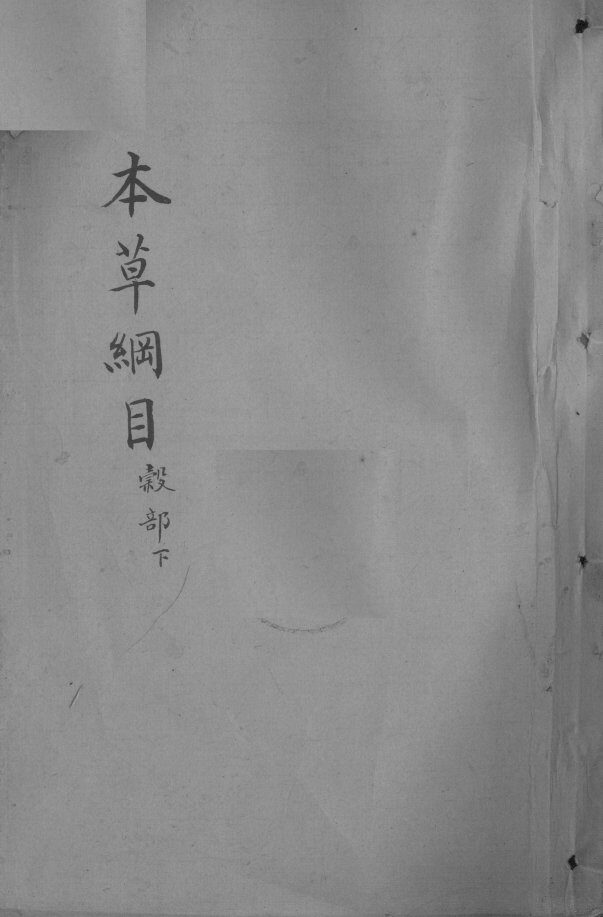 本草綱目
穀部下